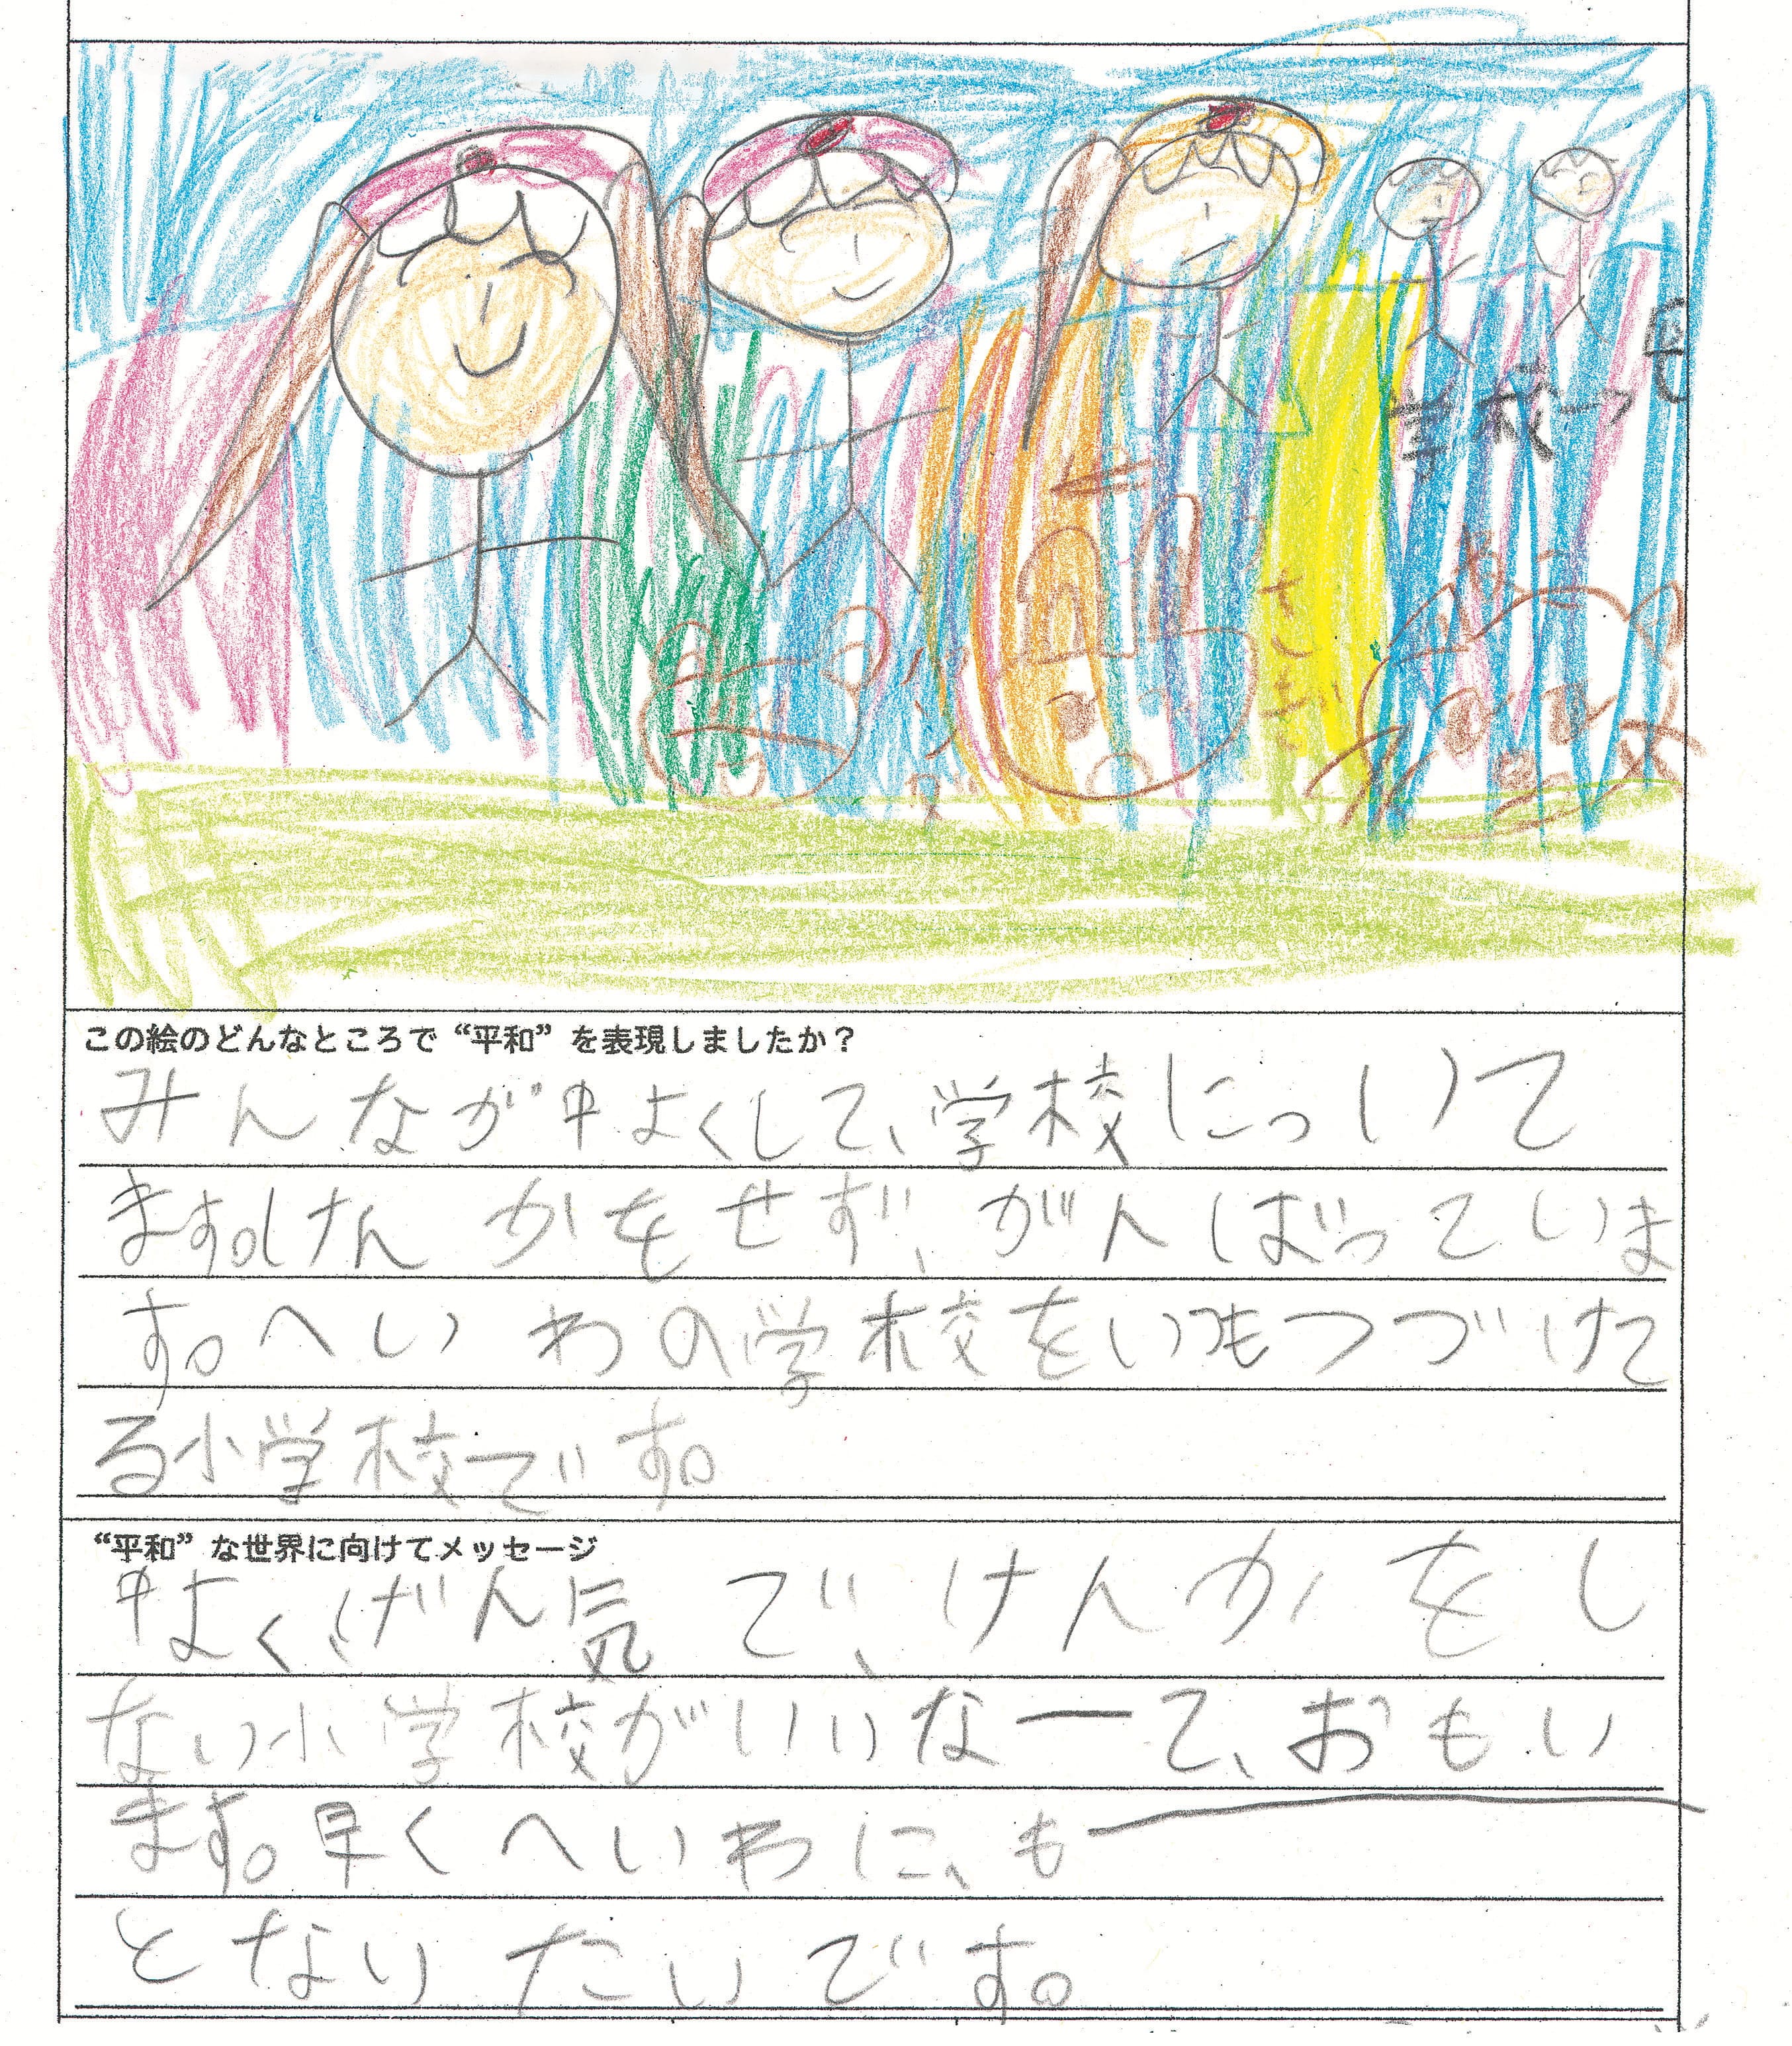 学校つ
この絵のどんなところで“平和”を表現しましたか？
みんなが中よくして、学校にっいて
ます。けんかをせず、がんばっていま
す。へいわの学校をいつもつづけて
る小学校です。
“平和”な世界に向けてメッセージ
中よく、げん気で、けんかをし
ない小学校がいいなーて、おもい
ます。早くへいわに、もー
となりたいです。